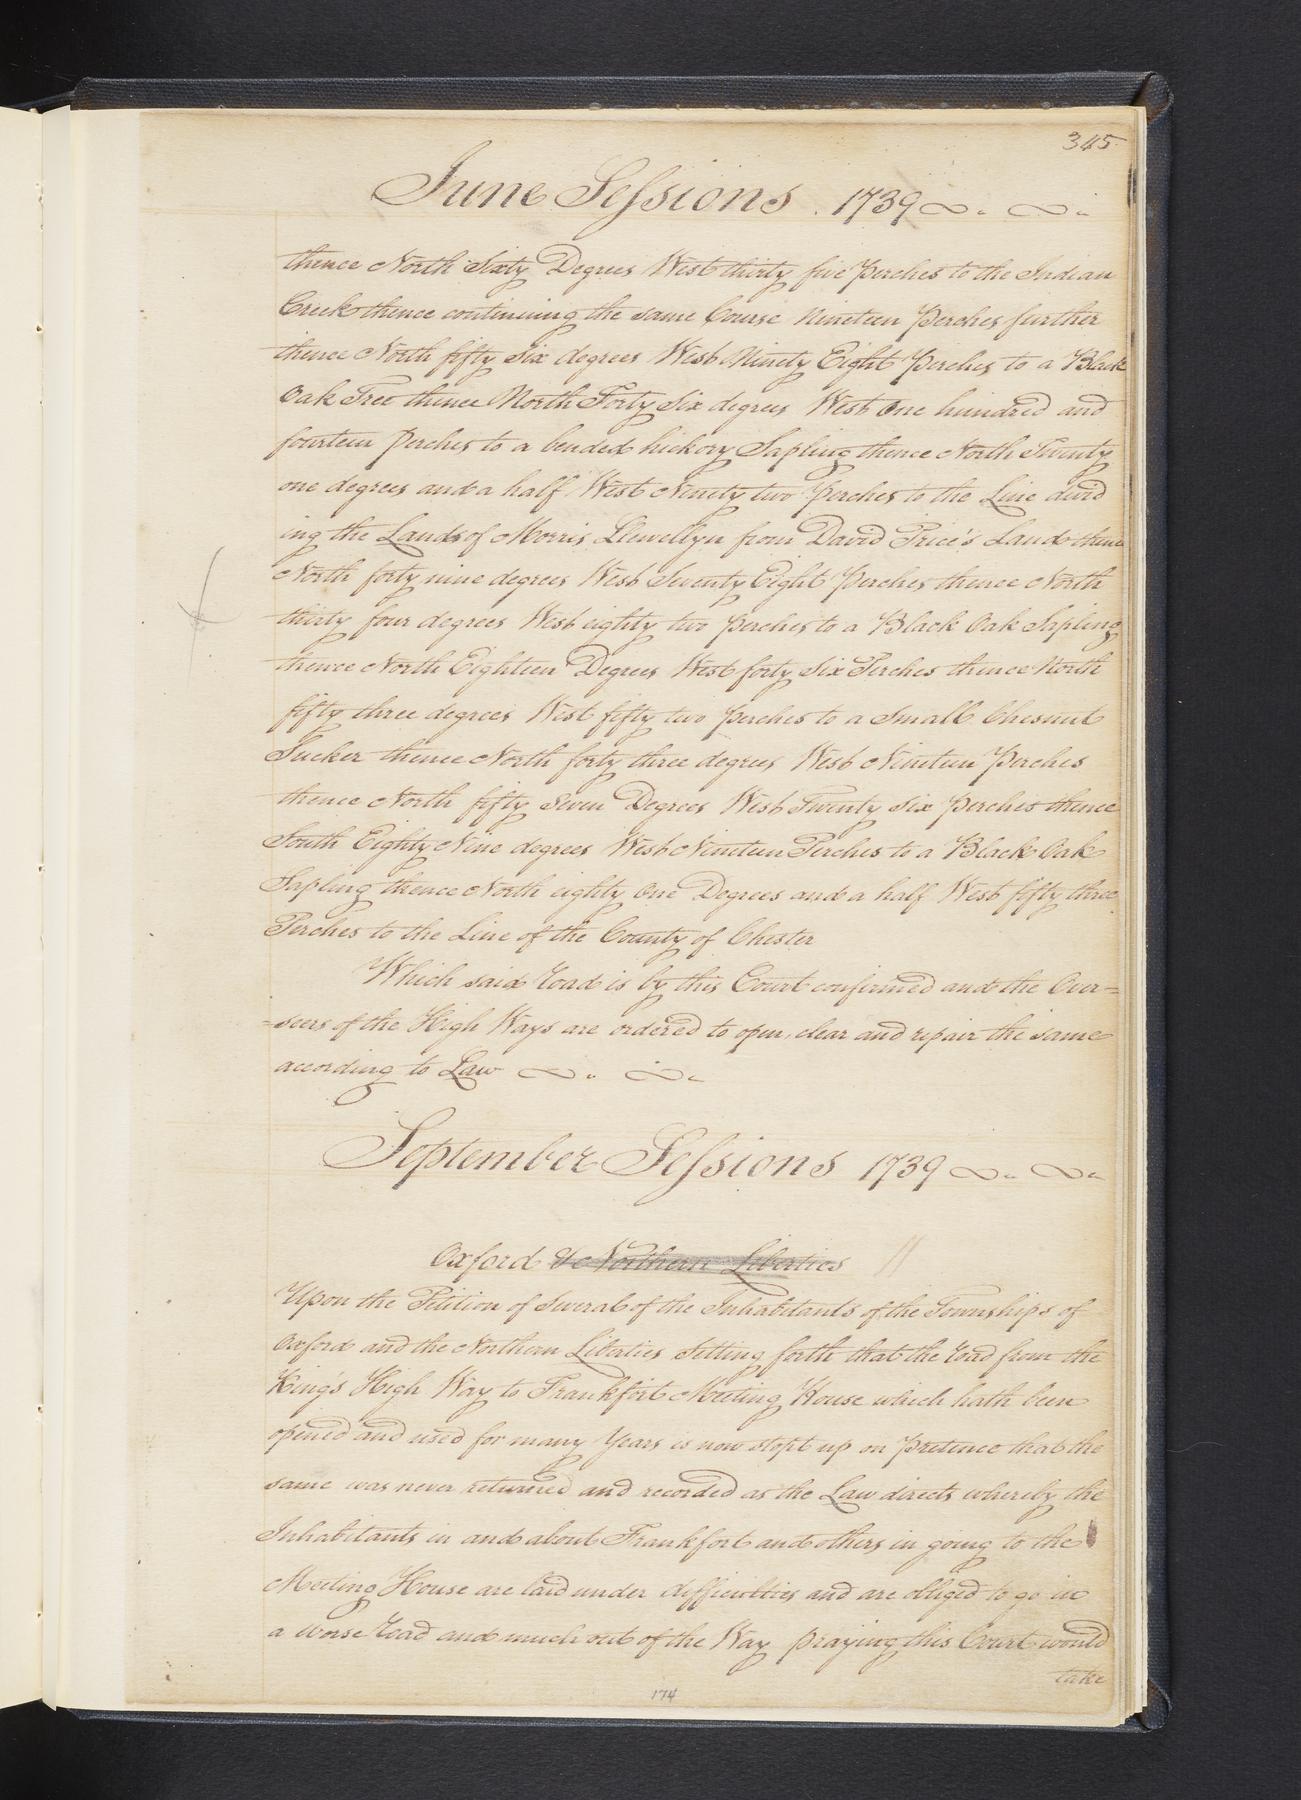 345
June Sessions . 1739
thence North Sixty Degrees West thirty five Perches to the Indian
Creek thence continuing the same Course Nineteen Perches further
thence North fifty Six degrees West Ninety Eight Perches to a Black
Oak Tree thence North Forty Six degrees West One hundred and
fourteen Perches to a bended hickory Sapling thence North Twenty
one degrees and a half West Ninety two Perches to the Line divid
ing the Lands of Morris Llewellyn from David Price's Land thence
North forty nine degrees West Seventy Eight Perches thence North
thirty four degrees West eighty two perches to a Black Oak Sapling
thence North Eighteen Degrees West forty Six Perches thence North
fifty three degrees West fifty two perches to a Small Chesnut
Sucker thence North forty three degrees West Nineteen Perches
thence North fifty Seven Degrees West Twenty Six perches thence
South Eighty Nine degrees West Nineteen Perches to a Black Oak
Sapling thence North eighty One Degrees and a half West fifty three
Perches to the Line of the County of Chester
Which said Road is by this Court confirmed and the Over=
=seers of the High Ways are ordered to open, clear and repair the same
according to Law
September Sessions 1739
Oxford & Northern Liberties //
Upon the Petition of Several of the Inhabitants of the Townships of
Oxford and the Northern Liberties Setting forth that the Road from the
King's High Way to Frankfort Meeting House which hath been
opened and used for many Years is now stopt up on Pretence that the
same was never returned and recorded as the Law directs whereby the
Inhabitants in and about Frankfort and others in going to the
Meeting House are laid under difficulties and are obliged to go in
a worse Road and much out of the Way praying this Court would
take
174